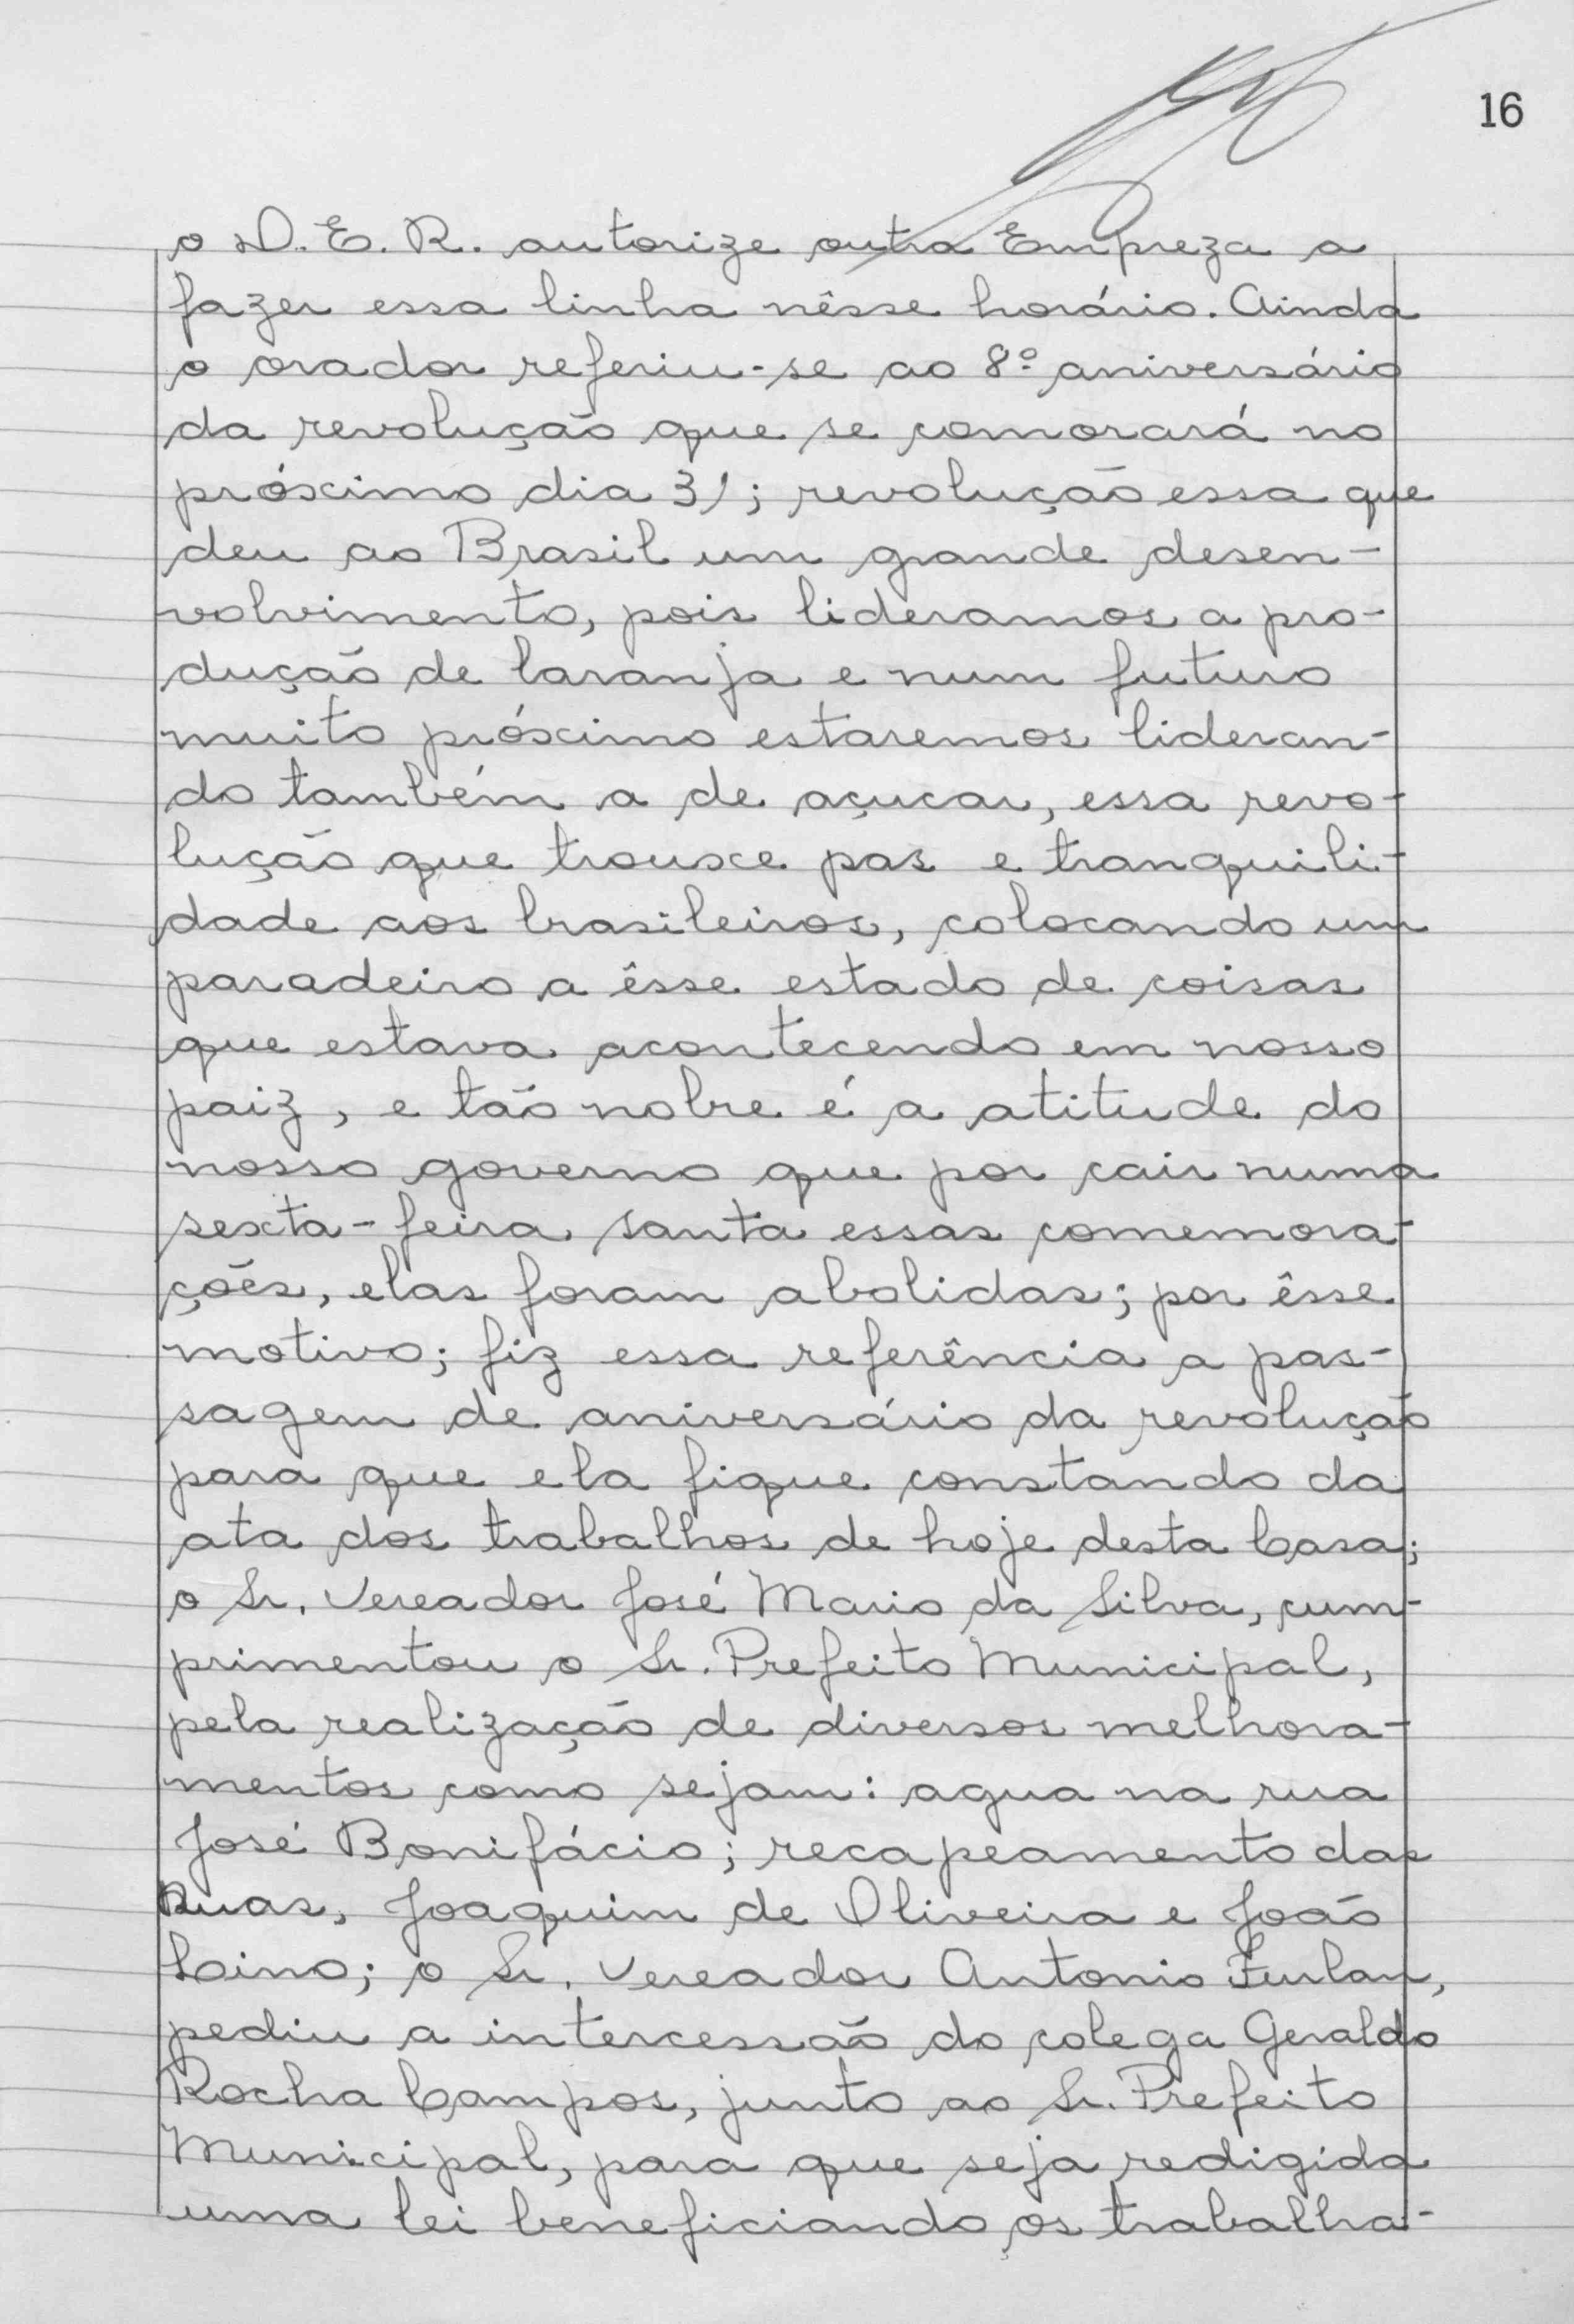 16
o D.E.R. autorize outra Empreza a
fazer essa linha nêsse horário. Ainda
o orador referiu-se ao 8º aniversário
da revolução que se comorará no
próximo dia 31; revolução essa que
deu ao Brasil um grande desen-
volvimento, pois lideramos a pro-
dução de laranja e num futuro
muito próximo estaremos lideran-
do também a de açucar, essa revo-
lução que trouxe pas e tranquili-
dade aos brasileiros, colocando um
paradeiro a êsse estado de coisas
que estava acontecendo em nosso
paiz, e tão nobre é a atitude do
nosso governo que por cair numa
sexta-feira santa essas comemora-
ções, elas foram abolidas; por êsse
motivo; fiz essa referência a pas-
sagem de aniversário da revolução
para que ela fique constando da
ata dos trabalhos de hoje desta Casa;
o Sr. Vereador José Mario da Silva, cum-
primentou o Sr. Prefeito Municipal,
pela realização de diversos melhora-
mentos como sejam: agua na rua
José Bonifácio; recapeamento das
Ruas, Joaquim de Oliveira e João
Lino; o Sr. Vereador Antonio Furlan,
pediu a intercessão do colega Geraldo
Rocha Campos, junto ao Sr. Prefeito
Municipal, para que seja redigida
uma lei beneficiando os trabalha-